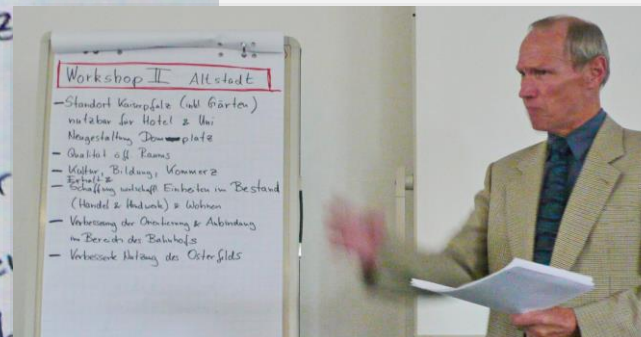 Workshop II Altstadt
– Standort Kaiserpfalz (inkl. Gärten)
nutzbar für Hotel & Uni
Neugestaltung Domplatz
– Qualität öff. Raums
– Kultur, Bildung, Kommerz
Erhalt &
– Schaffung wirtschaftl. Einheiten im Bestand
(Handel & Handwerk) & Wohnen
– Verbesserung der Orientierung & Anbindung
im Bereich des Bahnhofs
– Verbesserte Nutzung des Osterfelds